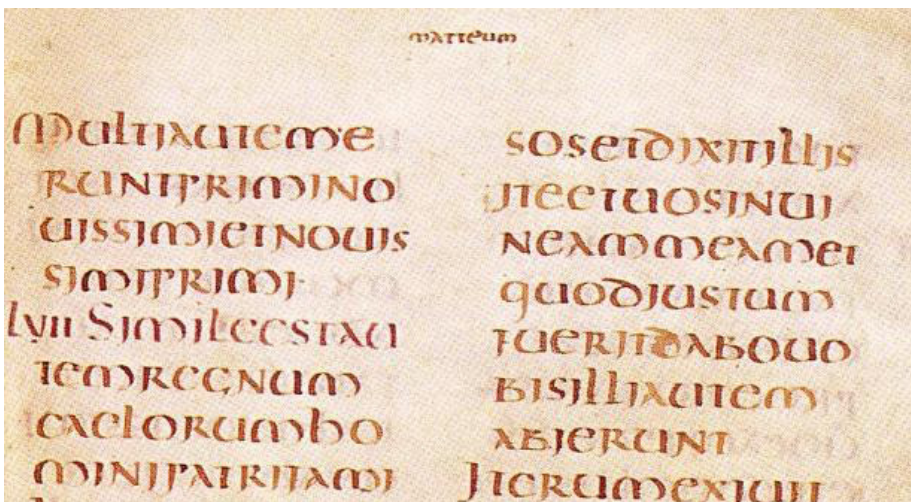 MATTEUM
MULTIAUTEME
RUNTPRIMINO
UISSIMIETNOUIS
SIMIPRIMI·
LVII SIMILEESTAU
TEMREGNUM
CAELORUMHO
MINIPATRIFAMI
SOSETDIXITILLIS
ITEETUOSINUI
NEAMMEAMET
QUODIUSTUM
FUERITDABOUO
BISILLIAUTEM
ABIERUNT
ITERUMEXIUIT